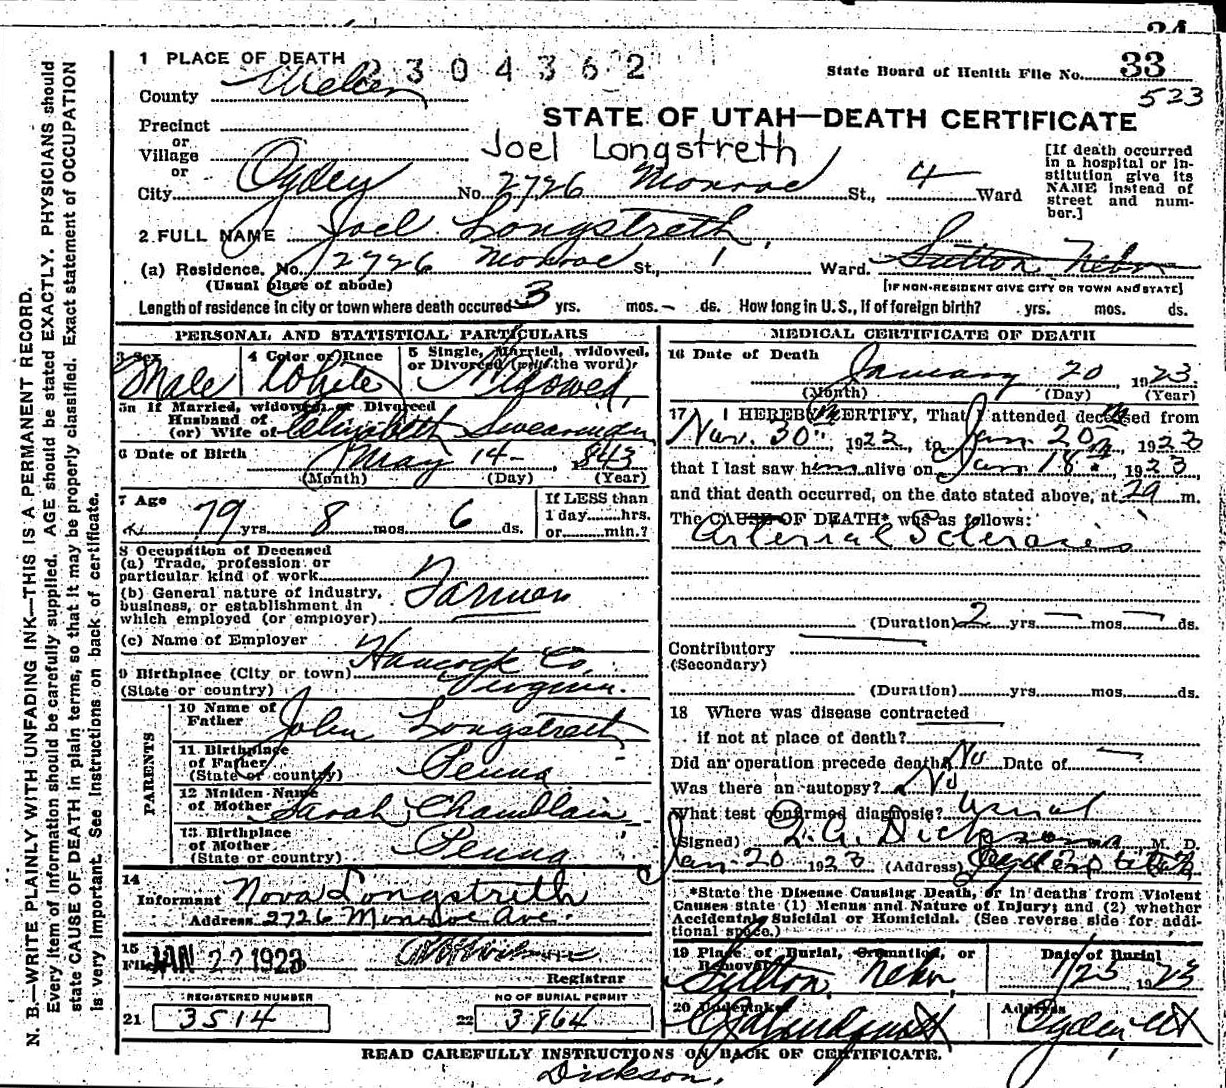 34
1 PLACE OF DEATH 2304362
State Board of Health File No. 33
523
County Weber
STATE OF UTAH—DEATH CERTIFICATE
Precinct
or
Village
or
Joel Longstreth
City Ogden No. 2726 Monroe St., 4 Ward
[If death occurred in a hospital or institution give its NAME instead of street and number.]
2. FULL NAME Joel Longstreth
(a) Residence. No. 2726 Monroe St., 1 Ward. Sutton Nebr
(Usual place of abode) [IF NON-RESIDENT GIVE CITY OR TOWN AND STATE]
Length of residence in city or town where death occured 3 yrs. mos. — ds. How long in U.S., if of foreign birth? yrs. mos. ds.
PERSONAL AND STATISTICAL PARTICULARS
3 Sex Male
4 Color or Race White
5 Single, Married, widowed, or Divorced (write the word) Widowed
5a If Married, widowed or Divorced
Husband of
(or) Wife of Elizabeth
6 Date of Birth May 14- 1843
(Month) (Day) (Year)
7 Age 79 yrs. 8 mos. 6 ds.
If LESS than
1 day......hrs.
or......min.?
8 Occupation of Deceased
(a) Trade, profession or
particular kind of work
(b) General nature of industry,
business, or establishment in
which employed (or employer)
Farmer
(c) Name of Employer
9 Birthplace (City or town) Hancock Co.
(State or country) Virginia.
PARENTS
10 Name of Father John Longstreth
11 Birthplace of Father (State or country) Penna
12 Maiden Name of Mother Sarah Chamblain
13 Birthplace of Mother (State or country) Penna
14
Informant Nova Longstreth
Address 2726 Monroe Ave.
15
Filed JAN 22 1923
Registrar
REGISTERED NUMBER
21 3514
NO OF BURIAL PERMIT
22 3964
MEDICAL CERTIFICATE OF DEATH
16 Date of Death
January 20 1923
(Month) (Day) (Year)
17 I HEREBY CERTIFY, That I attended deceased from
Nov. 30th, 1922, to Jan 20th 1923
that I last saw him alive on Jan 18, 1923
and that death occurred, on the date stated above, at m.
The CAUSE OF DEATH* was as follows:
Arterial Sclerosis
(Duration) 2 yrs. — mos. — ds.
Contributory
(Secondary)
(Duration) yrs. mos. ds.
18 Where was disease contracted
if not at place of death?
Did an operation precede death? No Date of —
Was there an autopsy? No
What test confirmed diagnosis? Usual
(Signed) Dickson M. D.
Jan-20 1923 (Address) Ogden Utah
*State the Disease Causing Death, or in deaths from Violent
Causes state (1) Menus and Nature of Injury; and (2) whether
Accidental, Suicidal or Homicidal. (See reverse side for addi-
tional space.)
19 Place of Burial, Cremation, or Removal Sutton Nebr,
Date of Burial 1/25 1923
20 Undertaker
Address Ogden Ut
READ CAREFULLY INSTRUCTIONS ON BACK OF CERTIFICATE.
Dickson.
N. B.—WRITE PLAINLY WITH UNFADING INK—THIS IS A PERMANENT RECORD.
Every item of information should be carefully supplied. AGE should be stated EXACTLY. PHYSICIANS should
state CAUSE OF DEATH in plain terms, so that it may be properly classified. Exact statement of OCCUPATION
is very important. See instructions on back of certificate.